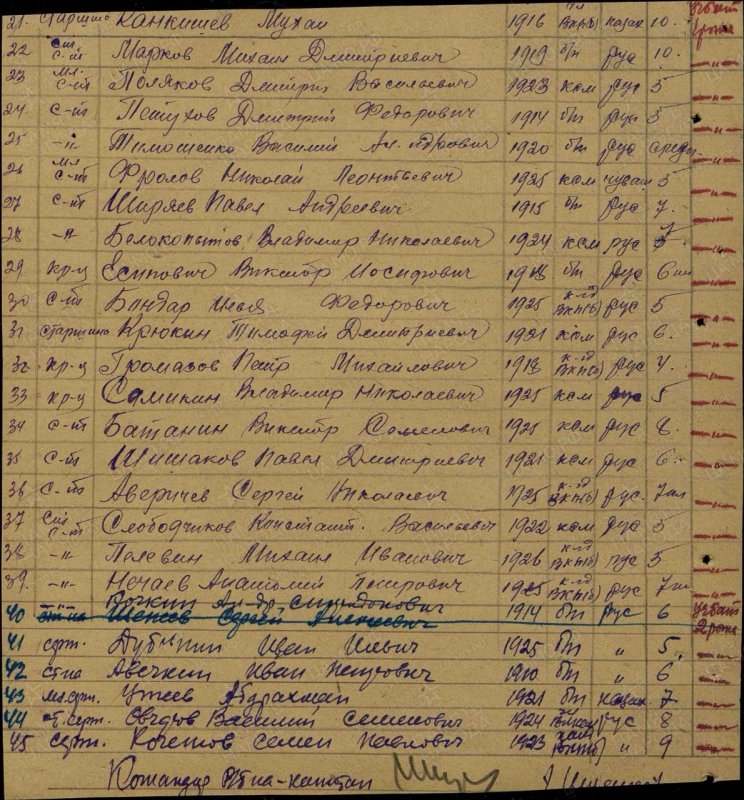 21. старшина Канкишев Мухан 1916 чл ВКП(б) казах 10. 1 рота
22 ст. с-нт Марков Михаил Дмитриевич 1919 б/п рус 10. —"—
23 мл. с-нт Поляков Дмитрий Васильевич 1923 ксм рус 5 —"—
24 с-нт Петухов Дмитрий Федорович 1914 б/п рус 5 —"—
25 —"— Тимошенко Василий 1920 б/п рус средн. —"—
26 мл с-нт Фролов Николай Леонтьевич 1925 ксм чуваш 5 —"—
27 с-нт Ширяев Павел Андреевич 1915 б/п рус 7. —"—
28 —"— Белокопытов Владимир Николаевич 1924 ксм рус 7 —"—
29 кр-ц Есипович Виктор Иосифович 1918 б/п рус 6 —"—
30 с-нт Бондар Федорович 1925 к-т ВКП(б) рус 5 —"—
31 старшина Крюкин Тимофей Дмитриевич 1921 ксм рус 6. —"—
32 кр-ц Громазов Петр Михайлович 1918 к-т ВКП(б) рус 4. —"—
33 кр-ц Самикин Владимир Николаевич 1925 ксм рус 5 —"—
34 с-нт Батанин Виктор Семенович 1921 ксм рус 8. —"—
35 с-нт Шишаков Павел Дмитриевич 1921 ксм рус 6. —"—
36 с-нт Аверичев Сергей Николаевич 1925 к-т ВКП(б) рус. 7 кл —"—
37 ст с-нт Слободчиков Констант. Васильевич 1922 ксм рус 5 —"—
38 —"— Пелевин Михаил Иванович 1926 к-т ВКП(б) рус 5 —"—
39. —"— Нечаев Анатолий Петрович 1925 к-т ВКП(б) рус 7 —"—
Кочкин Спиридонович
40 Сергей 1914 б/п рус 6 2 рота
41 серж. Дубинин Иван Ильич 1925 б/п " 5. —"—
42 ст-на Авечкин Иван Петрович 1910 б/п " 6 —"—
43 мл.серж. Утеев Абдрахман 1921 б/п казах 7 —"—
44 ст.серж. Овчаров Василий Семенович 1924 рус 8 —"—
45 серж. Кочетов Семен Павлович 1923 ВКП(б) " 9 —"—
Командир б-на-капитан